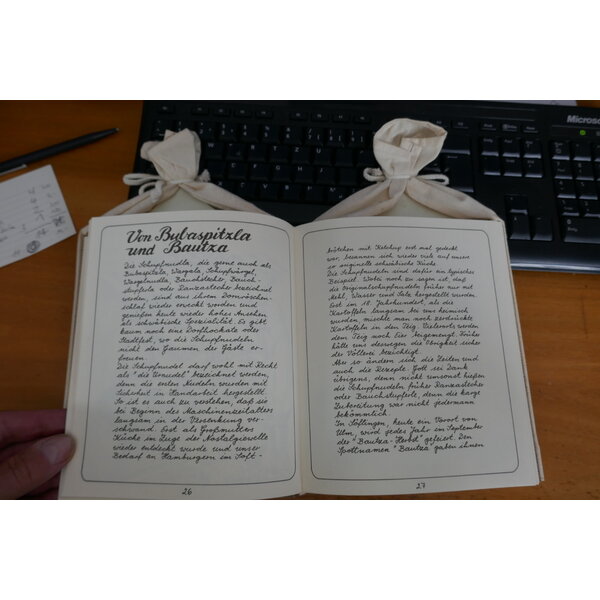 Microsoft
Von Bubaspitzla
und Bautza
Die Schupfnudla, die gerne auch als
Bubaspitzla, Wargala, Schupfwürgel,
Wargelnudla, Bauchstecher, Bauch-
stupferla oder Danzastecher bezeichnet
werden, sind aus ihrem Dornröschen-
schlaf wieder erweckt worden und
genießen heute wieder hohes Ansehen
als schwäbische Spezialität. Es gibt
kaum noch eine Dorfhockete oder
Stadtfest, wo die Schupfnudeln
nicht den Gaumen der Gäste er-
freuen.
Die Schupfnudel darf wohl mit Recht
als "die Urnudel" bezeichnet werden,
denn die ersten Nudeln wurden mit
Sicherheit in Handarbeit hergestellt.
So ist es auch zu verstehen, daß sie
bei Beginn des Maschinenzeitalters
langsam in der Versenkung ver-
schwand. Erst als Großmutters
Küche im Zuge der Nostalgiewelle
wieder entdeckt wurde und unser
Bedarf an Hamburgern im Soft-
26
brötchen mit Ketchup erst mal gedeckt
war, besannen sich wieder viele auf unsere
so originelle schwäbische Küche.
Die Schupfnudeln sind dafür ein typisches
Beispiel. Wobei noch zu sagen ist, daß
die Originalschupfnudeln früher nur mit
Mehl, Wasser und Salz hergestellt wurden
Erst im 18. Jahrhundert, als die
Kartoffeln langsam bei uns heimisch
wurden, mischte man noch zerdrückte
Kartoffeln in den Teig. Vielerorts werden
dem Teig noch Eier beigemengt. Früher
hätte uns deswegen die Obrigkeit sicher
der Völlerei bezichtigt.
Aber so ändern sich die Zeiten und
auch die Rezepte. Gott sei Dank
übrigens, denn nicht umsonst hießen
die Schupfnudeln früher Danzastecher
oder Bauchstupferle, denn die karge
Zubereitung war nicht jedermann
bekömmlich.
In Söflingen, heute ein Vorort von
Ulm, wird jedes Jahr im September
der "Bautza-Herbst" gefeiert. Den
Spottnamen "Bautza gaben ihnen
27